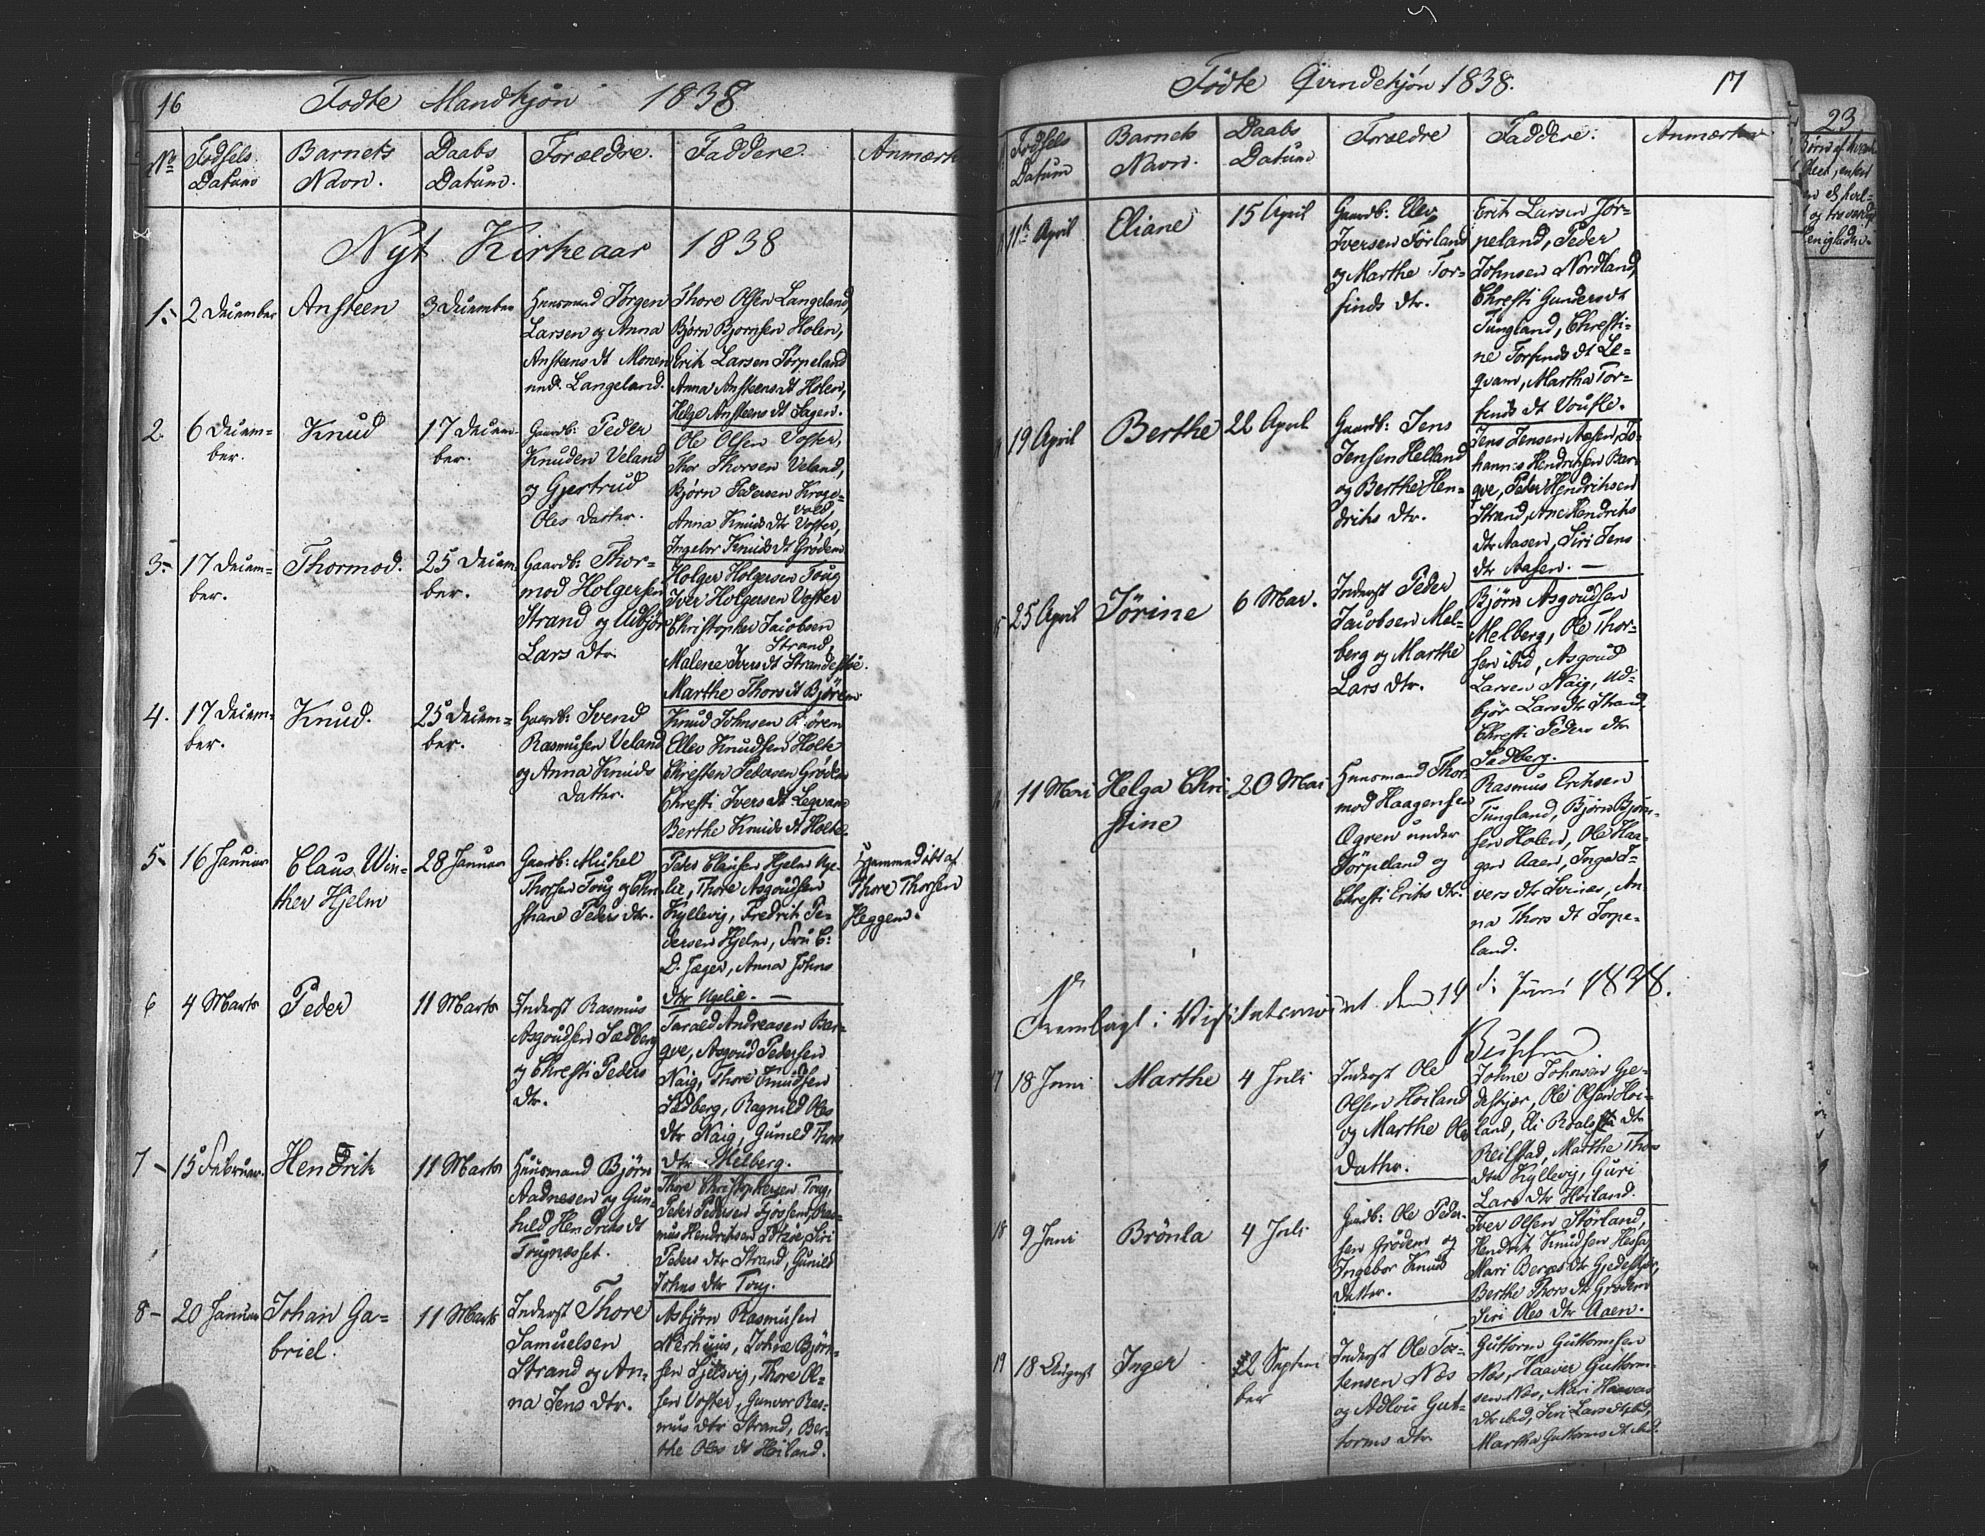 16
Fødte Mandkjøn 1838
No
Fødsels Datum
Barnets Navn.
Daabs Datum.
Forældre.
Faddere.
Anmærk
Nyt Kirkeaar 1838
1.
2 December
Ansteen
3 December
Huusmand Jörgen
Larsen og Anna
Ansteens dt Monen
und. Langeland.
Thore Olsen Langeland,
Bjørn Bjørnsen Holen,
Erik Larsen Tørpeland
Anna Ansteens dt Holen,
Helge Ansteens dt Sagen.
2
6 Decem=
ber.
Knud
17 Decem
ber.
Gaardb: Peder
Knudsen Veland
og Gjertrud
Oles Datter.
Ole Olsen Voster,
Thor Thorsen Veland,
Bjørn Pedersen Kroge=
vold,
Anna Knuds dtr Voster,
Ingebor Knuds dt Grødem
3
17 Decem=
ber.
Thormod.
25 Decem
ber.
Gaardb: Thor=
mod Holgersen
Strand og Udbjør
Lars dtr.
Holger Holgersen Toug
Iver Holgersen Voster
Christopher Jacobsen
Strand,
Malene Ivers dt Strandestøe.
Marthe Thors dt Bjøren
4.
17 Decem=
ber.
Knud.
25 Decem=
ber.
Gaardb: Svend
Rasmussen Veland
og Anna Knuds
Datter.
Knud Johnsen Bjørem
Ellev Knudsen Holte
Christen Pedersen Grødem
Chresti Ivers dt Leqvam
Berthe Knuds dt Holte
5
16 Januar
Claus Win=
ther Hjelm
28 Januar
Gaardb: Michel
Thorsen Toug og Chri
stiane Peders dtr.
Peder Clausen Hjelm
Thore Asgoudsen
Kyllevig, Fredrik Pe=
dersen Hjelm, Fru C:
D. Jæger, Anna Johns
dtr
Hjemmedøbt af
Thore Thorsen
Heggem.
6
4 Marts
Peder
11 Marts
Inderst Rasmus
Asgoudsen Sædberg
og Chresti Peders
dtr.
Tarald Andreasen Bar=
qve, Asgoud Pedersen
Naig, Thore Knudsen
Sædberg, Ragnild Oles
dtr Naig, Gunild Thors
dtr Melberg.
7
15 Februar
Hendrik
11 Marts
Huusmand Bjørn
Aadnesen og Gun=
hild Hendriks dt
Tougnæsset.
Thore Christophersen Toug,
Peder Pedersen
mus Hendriksen
Peders dtr Strand, Gunild
Johns dtr Toug.
8
20 Januar
Johan Ga=
briel.
11 Marts
Inderst Thore
Samuelsen
Strand og An=
na Jens dtr.
Asbjørn Rasmusen
Nerhuus, Johns Bjørn=
sen Fjelsvig, Thore Ol=
sen Voster, Gunvor Ras=
mus dtr Strand, Ber=
the Oles dt Høiland.
Fødte Qvindekjøn 1838.
17
Fødsels Datum
Barnets Navn.
Daabs Datum
Forældre
Faddere:
Anmærkn
11te April
Eliane
15 April
Gaardb: Elev
Iversen Førland
og Marthe Tor=
finds dtr.
Erik Larsen Jør=
peland, Peder
Johnsen Nordland,
Chresti Gunders dt
Tungland, Christi=
ne Torfinds dt Le=
qvam, Martha Tor=
finds dt Voufle.
19 April
Berthe
22 April
Gaardb: Jens
Jensen Helland
og Berthe Hen=
driks dtr.
Jens Jensen Aasen, Jo=
hannes Hendriksen Bar=
qve, Peder Hendriksen
Strand, Ane Hendriks
dtr Aasen, Siri Jens
dtr Aasen.
25 April
Jörine
6 Mai.
Inderst Peder
Jacobsen Mel=
berg og Marthe
Lars dtr.
Bjørn Asgoudsen
Melberg, Ole Thor=
sen ibid, Asgoud
Larsen Naig, Ud=
bjør Lars dtr Strand
Chresti Peders dtr
Sædberg.
11 Mai
Helga Chri
stine
20 Mai
Huusmand Thor
mod Haagensen
Øgren under
Jörpeland og
Chresti Eriks dtr.
Rasmus Eriksen
Tungland, Bjørn Bjørn=
sen Holen, Ole Haa=
gen Aaen, Inga I=
vers dtr Svines, An=
na Thors dt Jørpe=
land.
Fremlagt i Visitatsen den 19de Juni 1838.
18 Juni
Marthe
4 Juli
Inderst Ole
Olsen Høiland
og Marthe Oles
Datter.
Johne Johnsen Gje=
deskjær, Ole Olsen Høi=
land, Eli dtr
Reilstad, Marthe Thors
dtr Kyllevig, Guri
Lars dtr Høiland.
18
9 Juni
Brönla
4 Juli
Gaardb: Ole Peder=
sen Grødem og
Ingebor Knuds
Datter.
Iver Olsen Størland,
Hendrik Knudsen Hessa,
Mari Beros dtr Gjedeskjær,
Berthe Thors dt Grødem
Siri Oles dtr Aaen.
19
18 August
Inger
22 Septem
ber
Inderst Ole Tor=
stensen Næs
og Adlou Gut=
torms dtr.
Guttorm Guttormsen
Næs, Haaver Guttorm=
sen Næs, Mari Haavers
dtr ibid, Siri Lars dt ibid,
Martha Guttorms dt ibid.
23